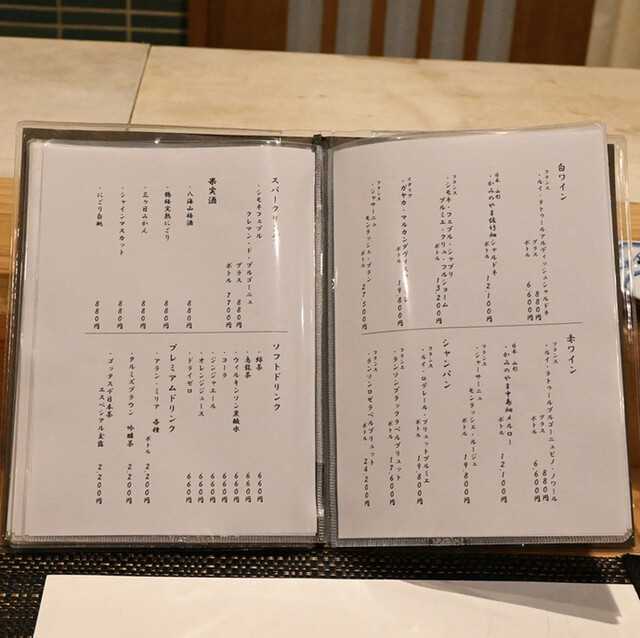 白ワイン
フランス
・ルイ・ラトゥールアルディッシュシャルドネ
グラス 880円
ボトル 6,600円
日本 山形
・かみのやま佐竹畑シャルドネ
ボトル 12,100円
フランス
・シモネ・フェブル・シャブリ
プルミエ・クリュ・フルショーム
ボトル 13,200円
イタリア
・ガヤカ・マルカンダヴィスタ
ボトル 19,800円
フランス
・シャサーニュ
モンラッシェ・ブラン
ボトル 27,500円
赤ワイン
フランス
・ルイ・ラトゥールブルゴーニュピノ・ノワール
グラス 880円
ボトル 6,600円
日本 山形
・かみのやま中島畑メルロー
ボトル 12,100円
フランス
・シャサーニュ
モンラッシェ・ルージュ
ボトル 19,800円
シャンパン
フランス
・ルイ・ロデレール・ブリュットプルミエ
ボトル 19,800円
フランス
・ランソンブラックラベルブリュット
ボトル 17,600円
フランス
・ランソンロゼラベルブリュット
ボトル 24,200円
スパークリング
・シモネフェブル
クレマン・ド・ブルゴーニュ
グラス 880円
ボトル 7,700円
果実酒
・八海山梅酒 880円
・鶴梅完熟にごり 880円
・三ヶ日みかん 880円
・シャインマスカット 880円
・にごり白桃 880円
ソフトドリンク
・緑茶 660円
・烏龍茶 660円
・ウィルキンソン炭酸水 660円
・コーラ 660円
・ジンジャエール 660円
・オレンジジュース 660円
・ドライゼロ 660円
プレミアムドリンク
・アラン・ミリア 各種
ボトル 2,200円
・クルミズブラウン 吟醸茶 2,200円
・ゴッタステ日本茶
エスペシアル玉露 2,200円